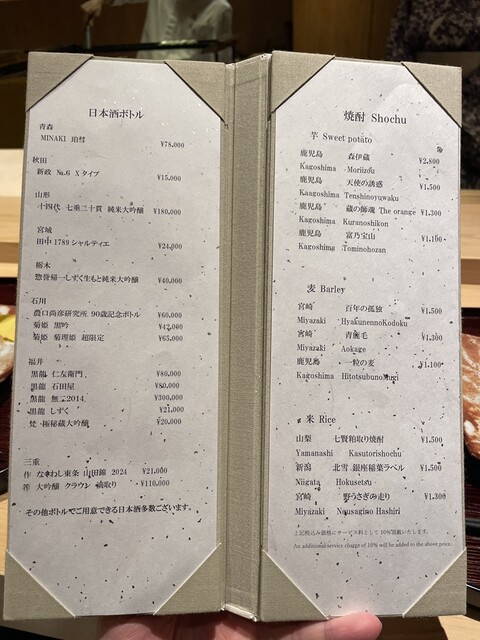 日本酒ボトル
青森
MINAKI 珀彗 ¥78,000
秋田
新政 No.6 Xタイプ ¥15,000
山形
十四代 七垂二十貫 純米大吟醸 ¥180,000
宮城
田中1789シャルティエ ¥24,000
栃木
惣誉帰一しずく生もと純米大吟醸 ¥40,000
石川
農口尚彦研究所 90歳記念ボトル ¥60,000
菊姫 黒吟 ¥42,000
菊姫 菊理媛 超限定 ¥65,000
福井
黒龍 仁左衛門 ¥80,000
黒龍 石田屋 ¥80,000
黒龍 無二2014 ¥300,000
黒龍 しずく ¥21,000
梵 極秘蔵大吟醸 ¥20,000
三重
作 なかわし東条 山田錦 2024 ¥21,000
大吟醸 クラウン 滴取り ¥110,000
その他ボトルでご用意できる日本酒多数ございます。
焼酎 Shochu
芋 Sweet potato
鹿児島 森伊蔵 ¥2,800
Kagoshima Moriizou
鹿児島 天使の誘惑 ¥1,500
Kaagoshima Tenshinoyuwaku
鹿児島 蔵の師魂 The orange ¥1,300
Kagoshima Kuranoshikon
鹿児島 富乃宝山 ¥1,100
Kagoshima Tominohozan
麦 Barley
宮崎 百年の孤独 ¥1,500
Miyazaki HyakunennoKodoku
宮崎 青鹿毛 ¥1,300
Miyazaki Aokage
鹿児島 一粒の麦 ¥1,100
Kagoshima Hitotsubunomugi
米 Rice
山梨 七賢粕取り焼酎 ¥1,500
Yamanashi Kasutorishochu
新潟 北雪 銀座稲葉ラベル ¥1,500
Niigata Hokusetsu
宮崎 野うさぎの走り ¥1,300
Miyazaki Nousagino Hashiri
上記税込み価格にサービス料として10%頂戴いたします。
An additional service charge of 10% will be added to the above price.